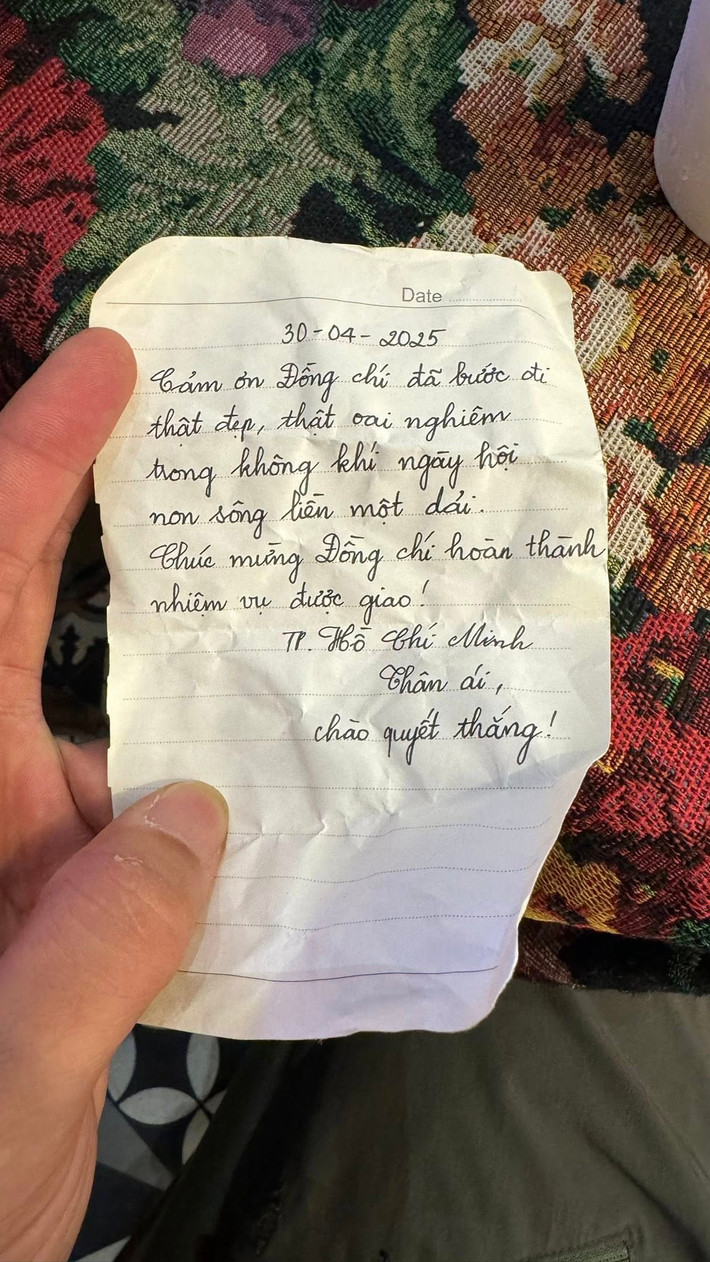 Date
30-04-2025
Cảm ơn Đồng chí đã bước đi
thật đẹp, thật oai nghiêm
trong không khí ngày hội
non sông liền một dải.
Chúc mừng Đồng chí hoàn thành
nhiệm vụ được giao!
TP. Hồ Chí Minh
Thân ái,
chào quyết thắng!